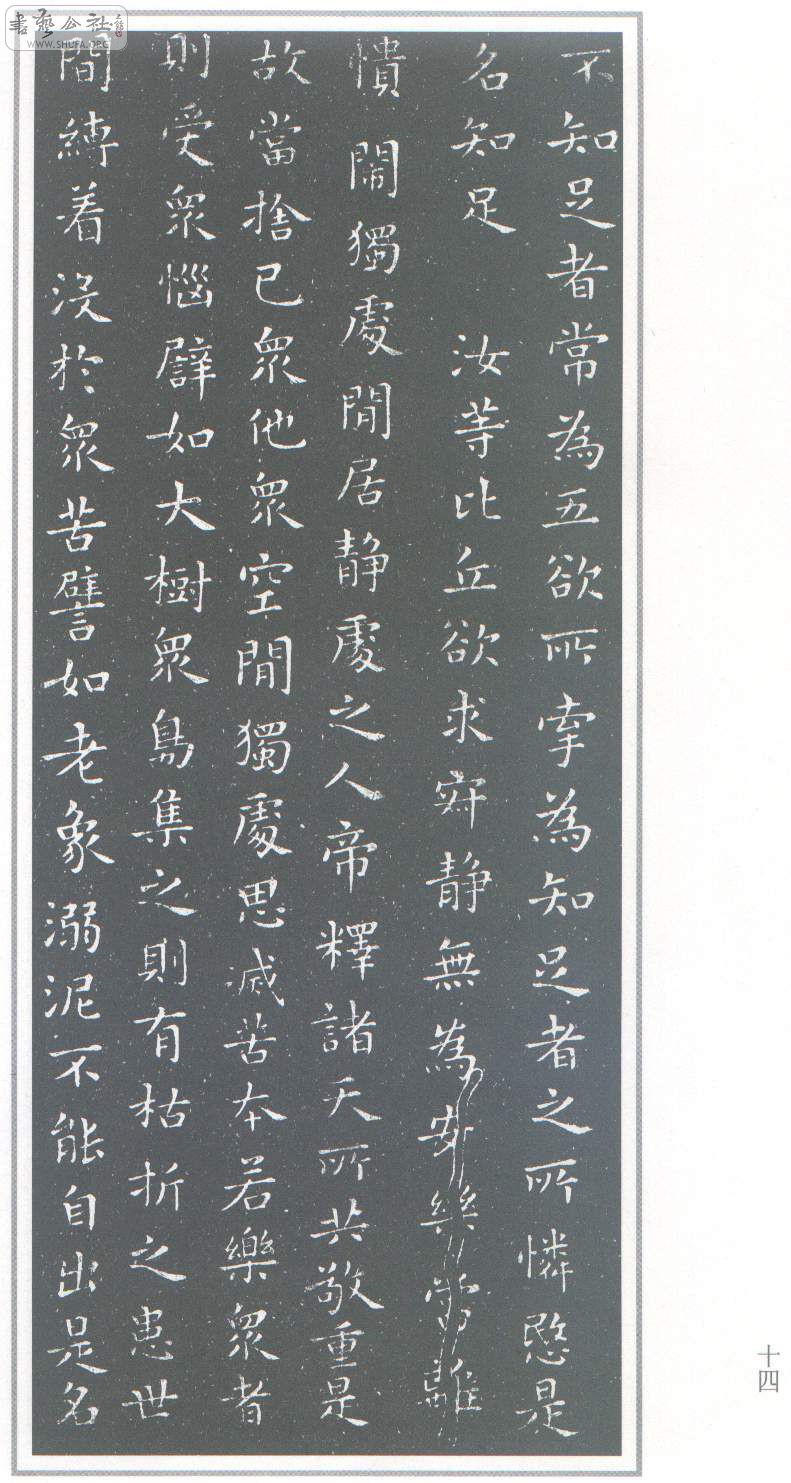 不知足者常為五欲所牽為知足者之所憐愍是
名知足 汝等比丘欲求寂静無為安樂當離
憒閙獨處閒居静處之人帝釋諸天所共敬重是
故當捨已眾他眾空閒獨處思滅苦本若樂眾者
則受眾惱譬如大樹眾鳥集之則有枯折之患世
間縛着没於眾苦譬如老象溺泥不能自出是名
十四
書藝公社
WWW.SHUFA.ORG